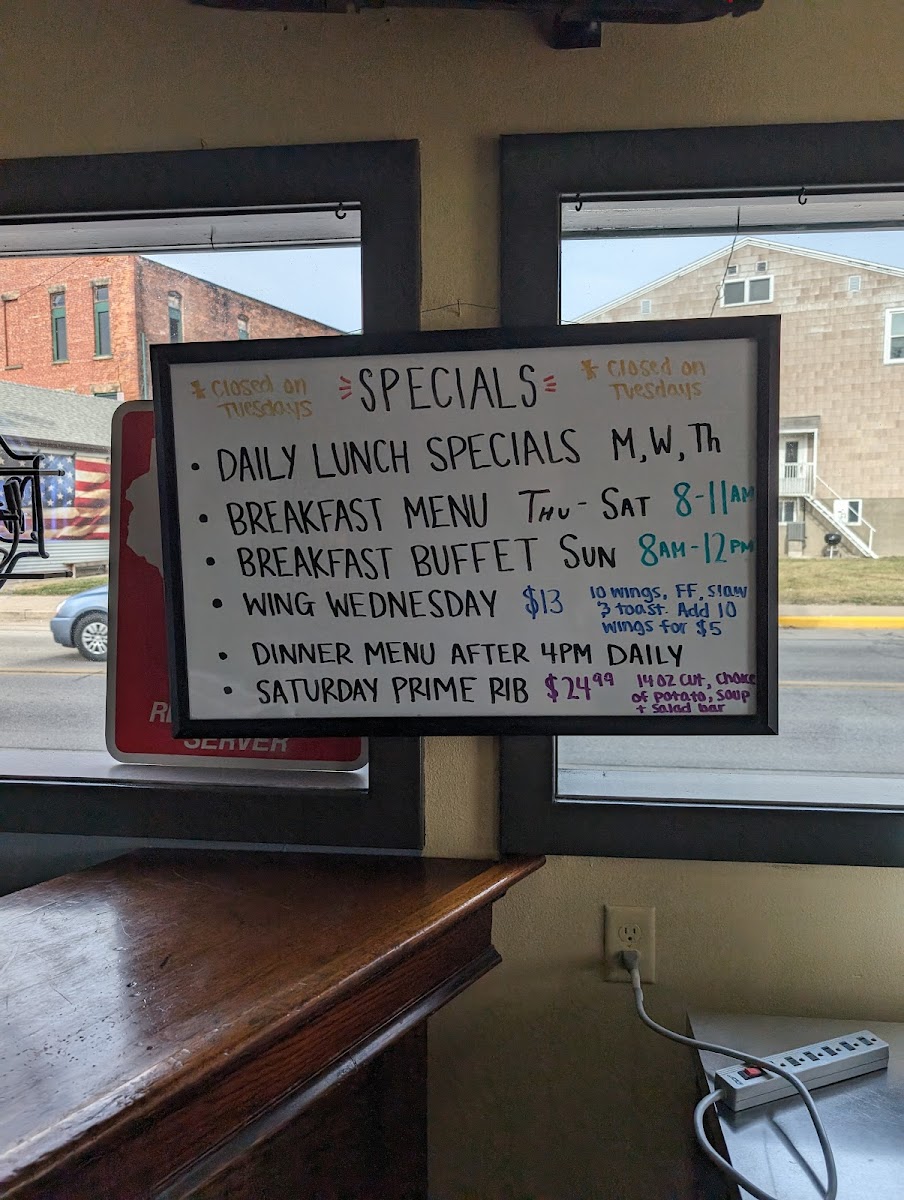 * Closed on Tuesdays
SPECIALS
* Closed on Tuesdays
• DAILY LUNCH SPECIALS M, W, Th
• BREAKFAST MENU THU - SAT 8-11AM
• BREAKFAST BUFFET SUN 8AM-12PM
• WING WEDNESDAY $13 10 wings, FF, slaw
3 toast. Add 10
wings for $5
• DINNER MENU AFTER 4PM DAILY
• SATURDAY PRIME RIB $24.99 14 OZ CUT, choice
of potato, soup
+ salad bar
SERVER